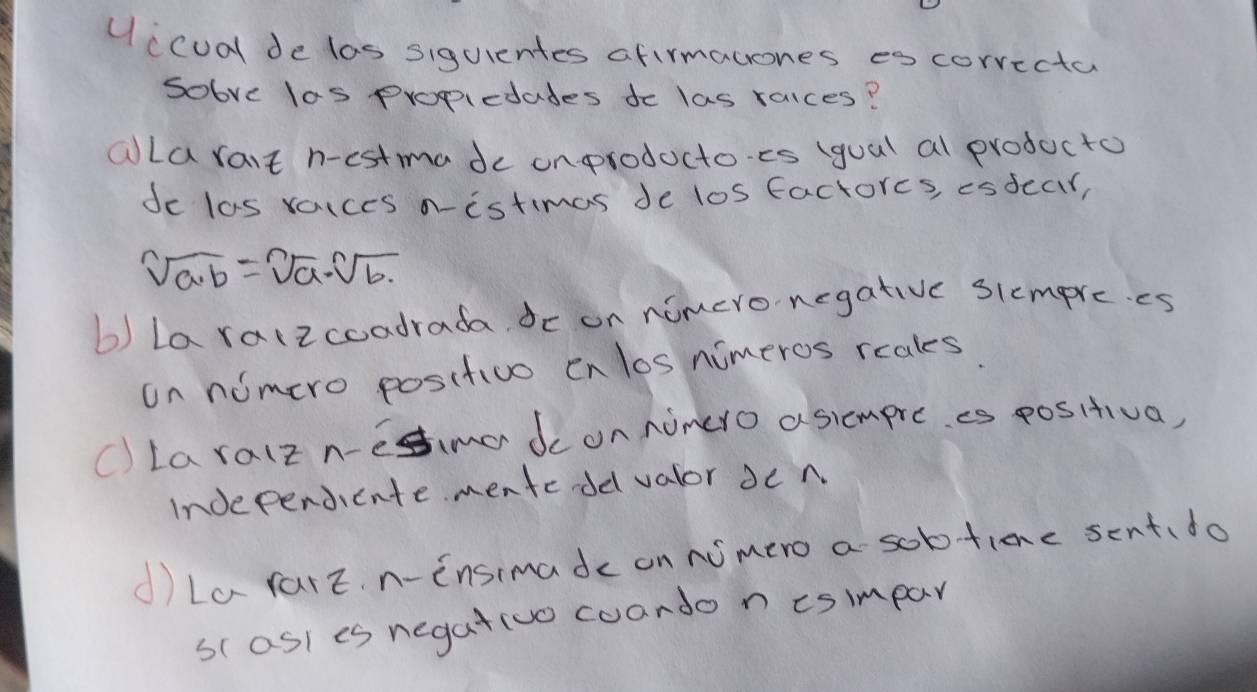 4¿cual de las siguientes afirmaciones es correcta
sobre las propiedades de las raices?
a) La raiz n-estima de un producto.es igual al producto
de las raices n-éstimas de los factores, es decir,
ⁿ√a.b = ⁿ√a . ⁿ√b.
b) La raiz cuadrada. de un número negative siempre.es
un número positivo en los números reales.
c) La raiz n-ésima de un número a siempre.es positiva,
independiente.mente del valor de n.
d) La raiz.n-énsima de un número a solo tiene sentido
si asi es negativo cuando n es impar